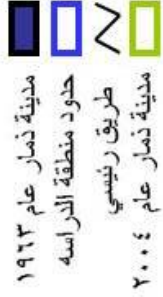 مدينة ذمار عام ١٩٦٣
حدود منطقة الدراسه
طريق رئيسي
مدينة ذمار عام ٢٠٠٤